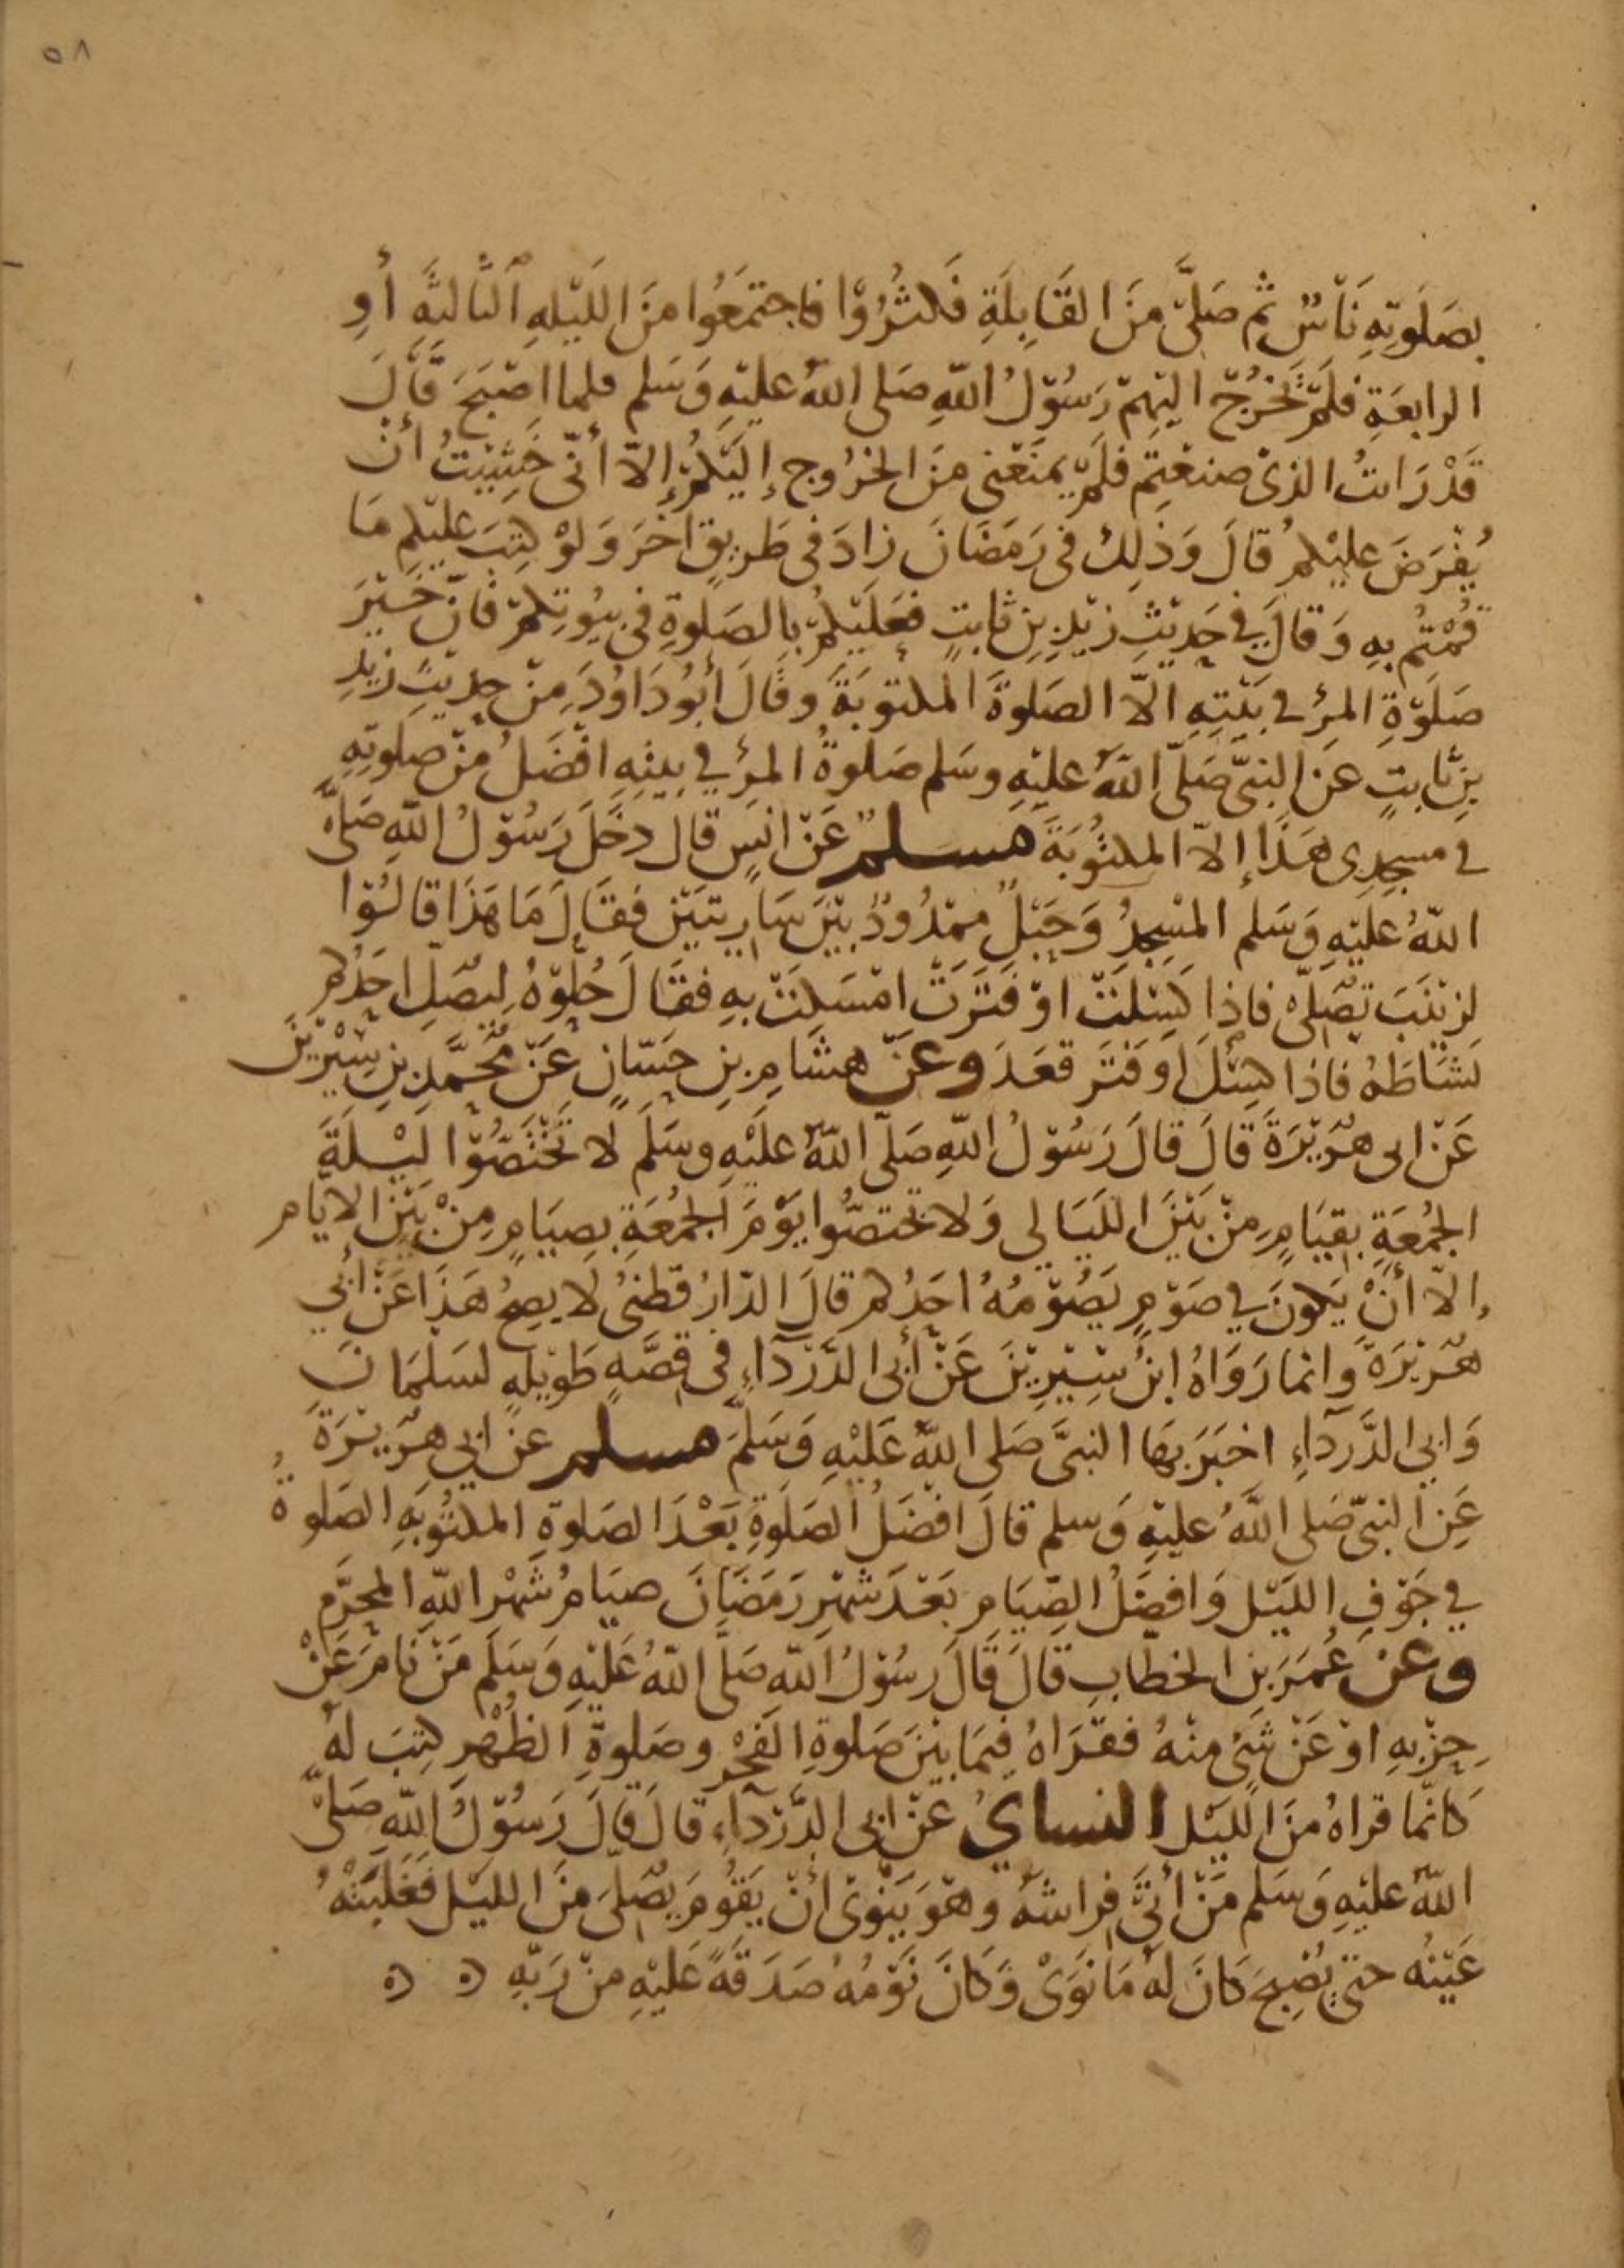 ٥٨
بصَلَوتِهِ نَاسٌ ثم صَلَّى منَ القَابِلَةِ فَكثُرُوْا فاجتمَعُوا منَ اللَيْلهِ الثَالثَةِ أوِ
الرابعَةِ فلَمْ يَخْرُجْ اليْهمْ رَسُوْلُ اللّهِ صَلى اللّهُ عليْهِ وَسَلم فلما اصْبَحَ قَالَ
قَدْ رَايتُ الذىْ صنعْتم فلَمْ يمنَعْنى منَ الخرُوج إليَكُمْ إلاّ أنّى خَشِيْتُ أنْ
يُفْرَضَ عليْكمْ قالَ وَذلِكَ فى رَمَضَانَ زادَ فى طَريقٍ اخَرَ وَلوْ كتِبَ عليْكم مَا
قُمْتُمْ بهِ وَقالَ في حَدِيْثِ زيْدِ بنِ ثابتٍ فعَلَيْكُمْ بالصَلوةِ فى بيُوتكمْ فانّ خَيْرَ
صَلَوْةِ المرْءِ في بَيْتِهِ الاّ الصَلوةَ المكتوبَةَ وقَالَ أبُو دَاوُدَ مِنْ حديْثِ زيْدِ
بنِ ثابتٍ عنَ النبىّ صَلّى اللّهُ عليْهِ وسَلم صَلوةُ المرْءِ في بيتِهِ افْضَلُ منْ صلوتِهِ
في مسجدِى هَذا إلاّ المكتُوبَةَ مسلمٌ عَنْ انَسٍ قال دخَلَ رَسُوْلُ اللّهِ صَلىّ
اللّهُ عليْهِ وَسَلم المسْجدَ وَحَبْلٌ ممْدُودٌ بيْنَ سَاريتيْنِ فقالَ مَا هَذَا قالُوْا
لزيْنَبَ تصَلىّ فاذا كَسِلَتْ اوْ فَتَرَتْ امْسَكتْ بهِ فقَالَ حُلّوْهُ لِيصَلِّ احَدُكم
نَشَاطَهُ فاذا كسِلَ اوْ فتَرَ قعَدَ وعنْ هشَامِ بنِ حسّانٍ عَنْ محُمَّدِ بنِ سِيْرِيْنَ
عَنْ ابى هرَيْرَةَ قالَ قالَ رَسُوْلُ اللّهِ صَلّى اللّهُ عَليْهِ وسَلَم لا تخْتَصّوْا ليْلَةَ
الجُمُعَةِ بقيَامٍ مِنْ بَيْنَ اللَيَالى وَلا تختصُّوا يَوْمَ الجُمُعَةِ بصِيَامٍ مِنْ بَيْنَ الايَّام
إلاّ أنْ يَكونَ في صَوْمٍ يَصُوْمُهُ احَدُكم قالَ الدّارُقطنىُ لا يصِحُ هَذَا عَنْ أبي
هرَيْرَةَ وانما رَوَاهُ ابنُ سِيْرِيْنَ عَنْ أبى الدَرْدَآءِ فى قصَّةٍ طَويْلةٍ لسَلمَانَ
وَابى الدَّرْدَآءِ اخبَرَ بهَا النبىَّ صَلى اللّهُ عَلَيْهِ وَسَلَّمَ مسلم عنْ ابي هرَيْرَةَ
عَنِ النبىّ صَلى اللّهُ عليْهِ وَسلم قالَ افْضَلُ الصَلَوةِ بَعْدَ الصَلوةِ المكتُوبَةِ الصَلوةُ
في جَوْفِ الليَلِ وَافضَلُ الصِّيَامِ بَعْدَ شَهْرِ رَمَضَانَ صيَامُ شَهْرِ اللّهِ المحرَّمِ
وعنْ عُمَرَ بنِ الخطّابِ قالَ قَالَ رسُوْلُ اللّهِ صَلَّى اللّهُ عَليْهِ وَسَلَم مَنْ نَامَ عَنْ
حِزْبهِ اوْ عَنْ شَىْءٍ منْهُ فقرَاهُ فيمَا بيْنَ صَلوةِ الفجْرِ وصَلوةِ الظُهْرِ كتِبَ لَهُ
كانّما قراهُ منَ اللَيْلِ النساىُ عَنْ ابى الدَّرْدآءِ قالَ قَالَ رَسُوْلُ اللّهِ صَلىّ
اللّهُ عليْهِ وَسَلم مَنْ أتَى فراشَهُ وَهوَ يَنْوىْ أنْ يَقوُمَ يصَلىَ منَ الليَلِ فغَلبَتْهُ
عَيْنُه حتىّ يصْبحَ كانَ لهُ مَا نَوَىْ وَكانَ نَوْمُهُ صَدَقةً عَليْهِ منْ رَبّهِ ه ه